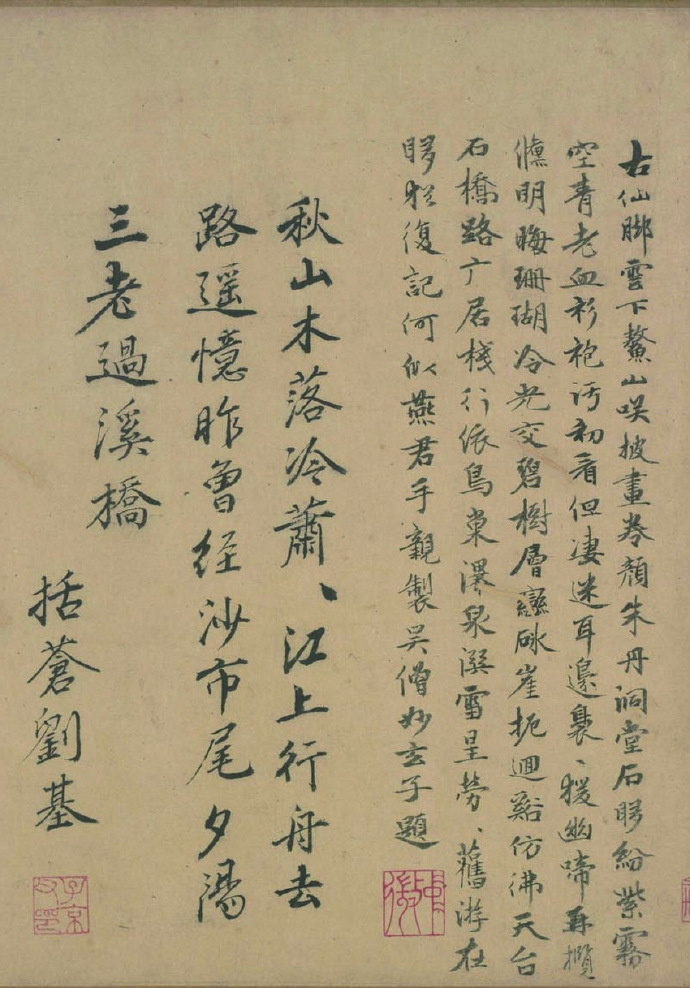 右仙脚雲下鰲山咲披畫卷顏朱丹洞堂石紛紫霧
空青老血衫袍污初看但淒迷耳邊裊、猨幽啼再攬
明晦珊瑚冷光交碧樹層巒砯崖扼迴谿仿彿天台
石橋路广居棧行依鳥巢瀑泉潠雪呈勞、舊游在
猶復記何似燕君手親製吳僧妙玄子題
秋山木落冷蕭、江上行舟去
路遥憶昨曾经沙市尾夕陽
三老過溪橋
括蒼劉基
子京父印